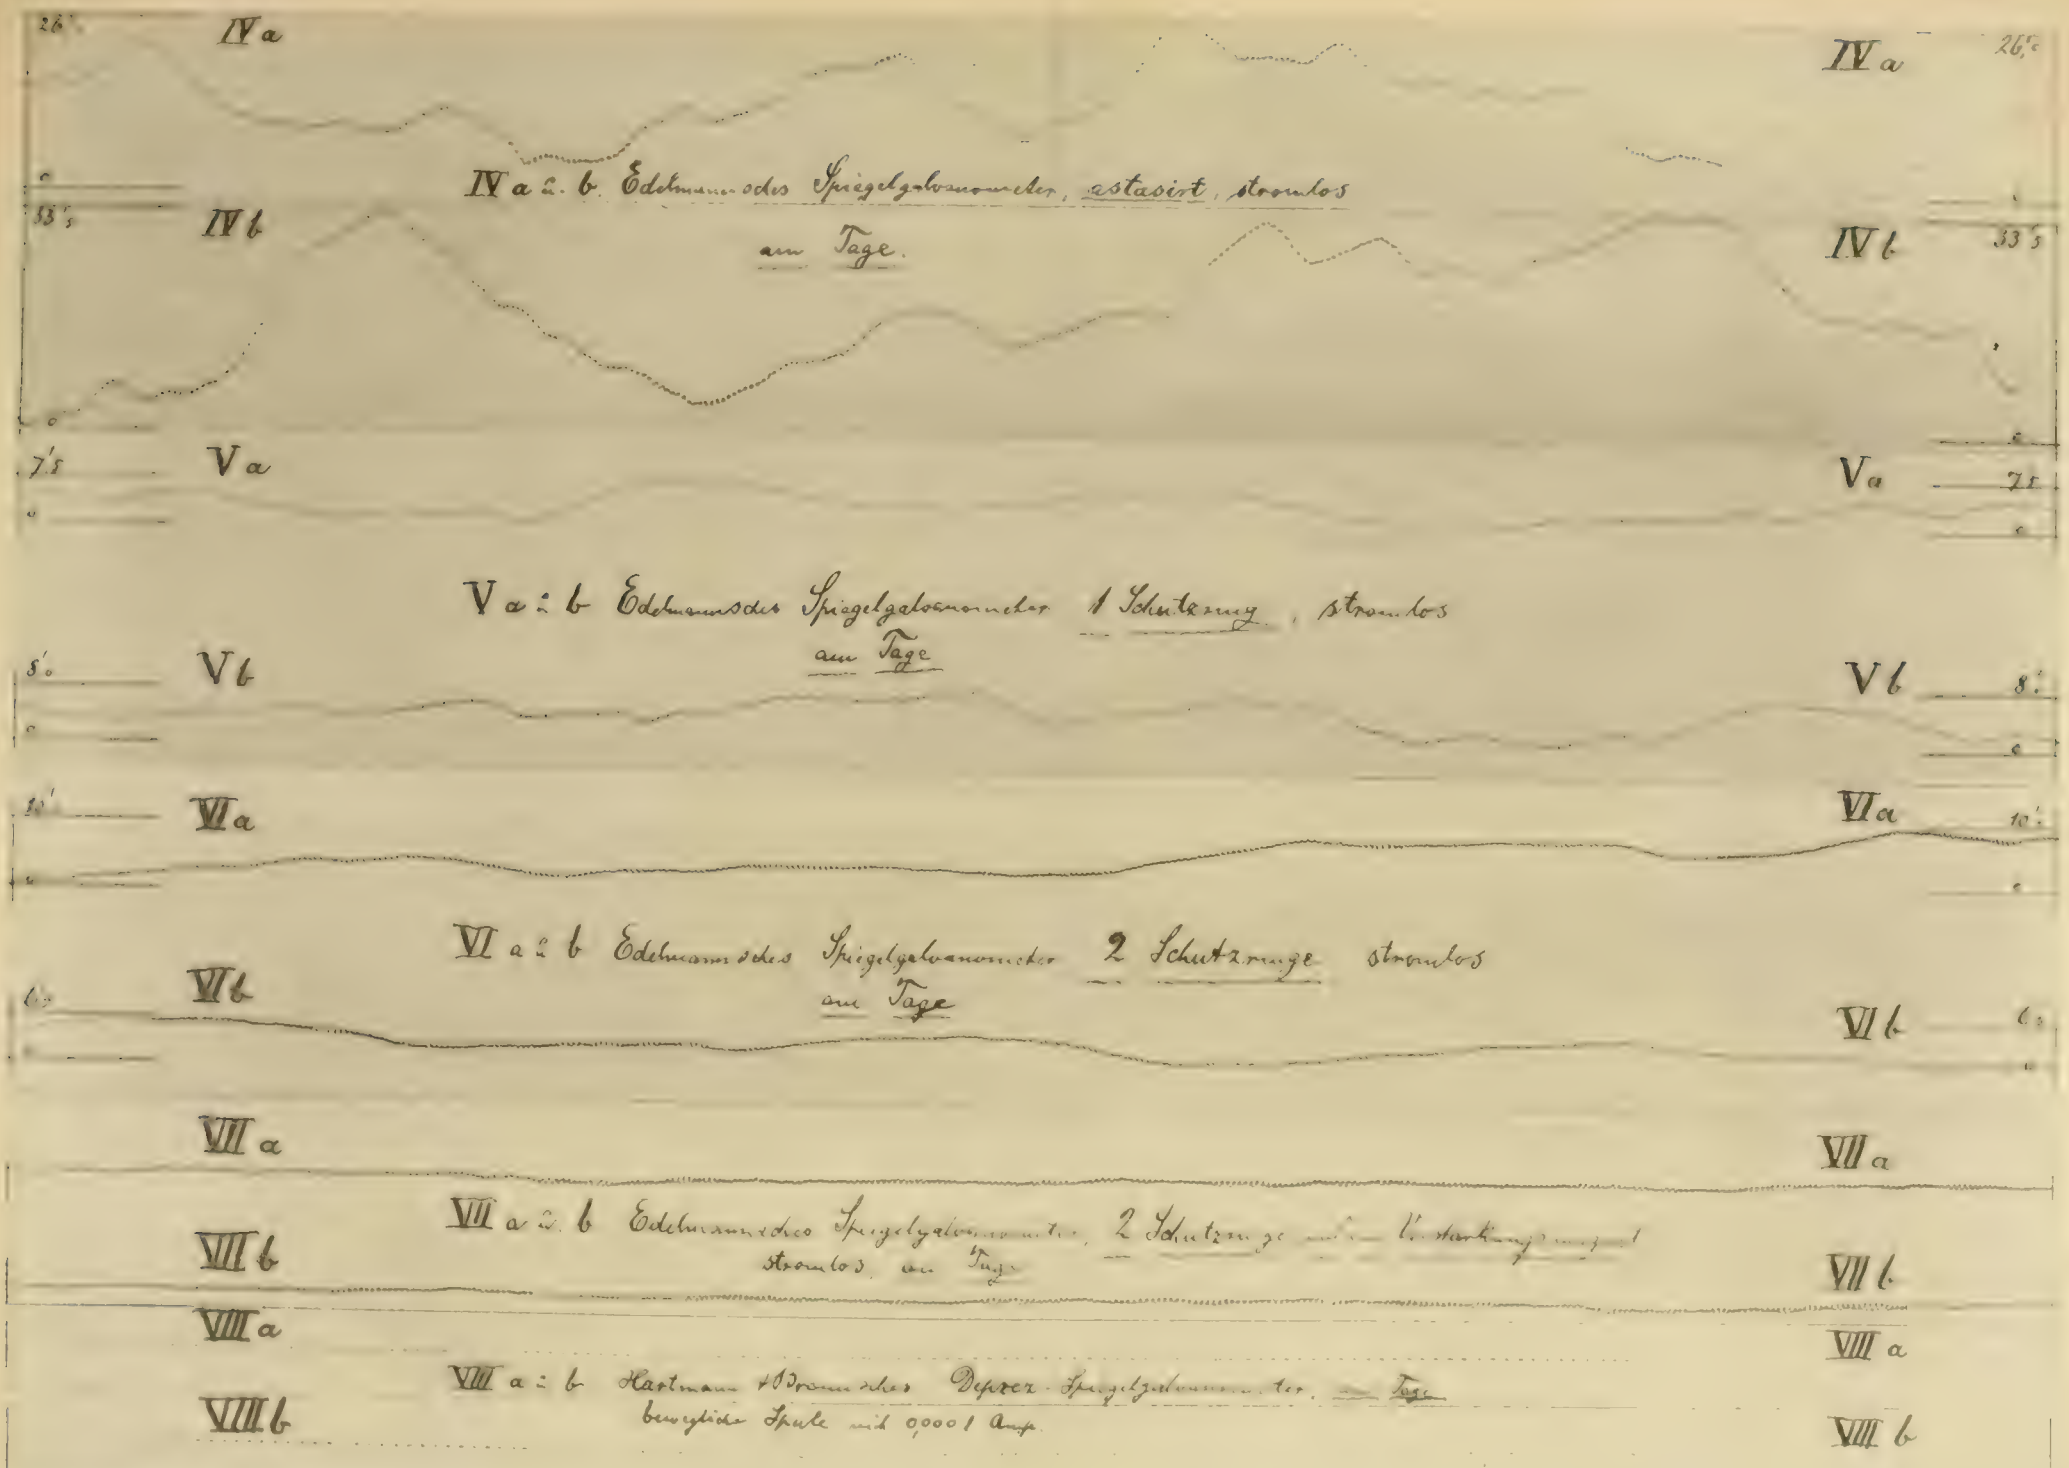 IV a
IV a
26'5
IV a û. b. Edelmannsches Spiegelgalvanometer, astasirt, stromlos
am Tage.
0
33'5
IV b
IV b
33'5
0
0
7'5
V a
V a
7'5
0
0
V a û b Edelmannsches Spiegelgalvanometer 1 Schutzring, stromlos
am Tage
8'0
V b
V b
8'
0
0
10'
VI a
VI a
10'
0
VI a û b Edelmannsches Spiegelgalvanometer 2 Schutzringe stromlos
am Tage
VI b
VI b
VII a
VII a
VII a û. b Edelmannsches Spiegelgalvanometer, 2 Schutzringe
stromlos, am Tage
VII b
VIII a
VIII a
VIII a û b Hartmann & Braunsches Deprez-Spiegelgalvanometer, am Tage
bewegliche Spule mit 0,0001 Amp.
VIII b
VIII b